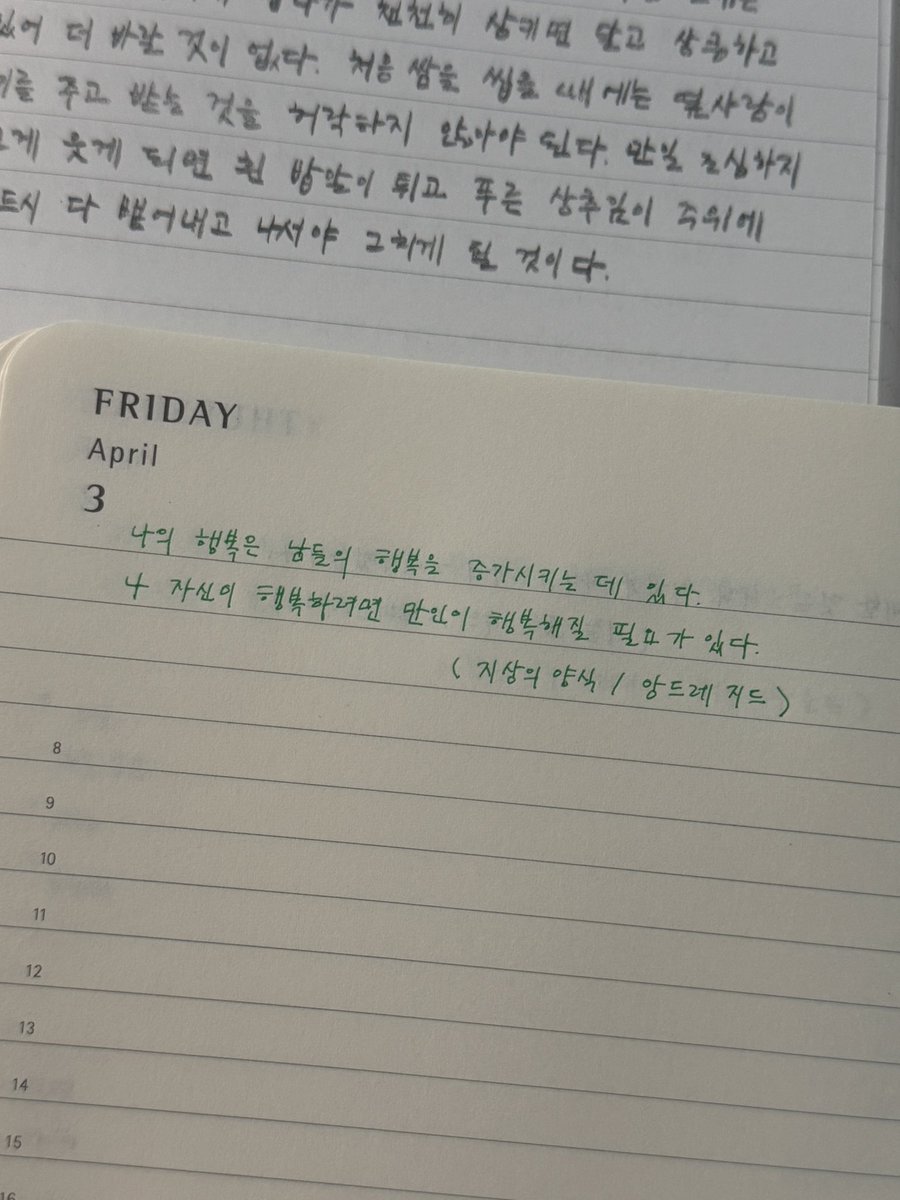 천천히 삼키면 달고 상큼하고
있어 더 바랄 것이 없다. 처음 쌈을 씹을 때에는 옆사람이
주고 받는 것을 허락하지 않아야 된다. 만일 조심하지
웃게 되면 흰 밥알이 튀고 푸른 상추잎이 주위에
다 뱉어내고 나서야 그치게 될 것이다.
FRIDAY
April
3
나의 행복은 남들의 행복을 증가시키는 데 있다.
나 자신이 행복하려면 만인이 행복해질 필요가 있다.
( 지상의 양식 / 앙드레 지드 )
8
9
10
11
12
13
14
15
16